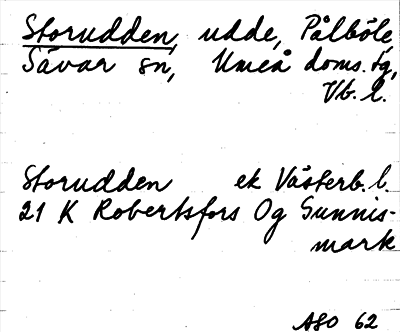 Storudden, udde, Pålböle,
Sävar sn, Umeå doms. tg,
Vb. l.
Storudden ek Västerb. l.
21 K Robertsfors Og Gunnis-
mark
ASO 62